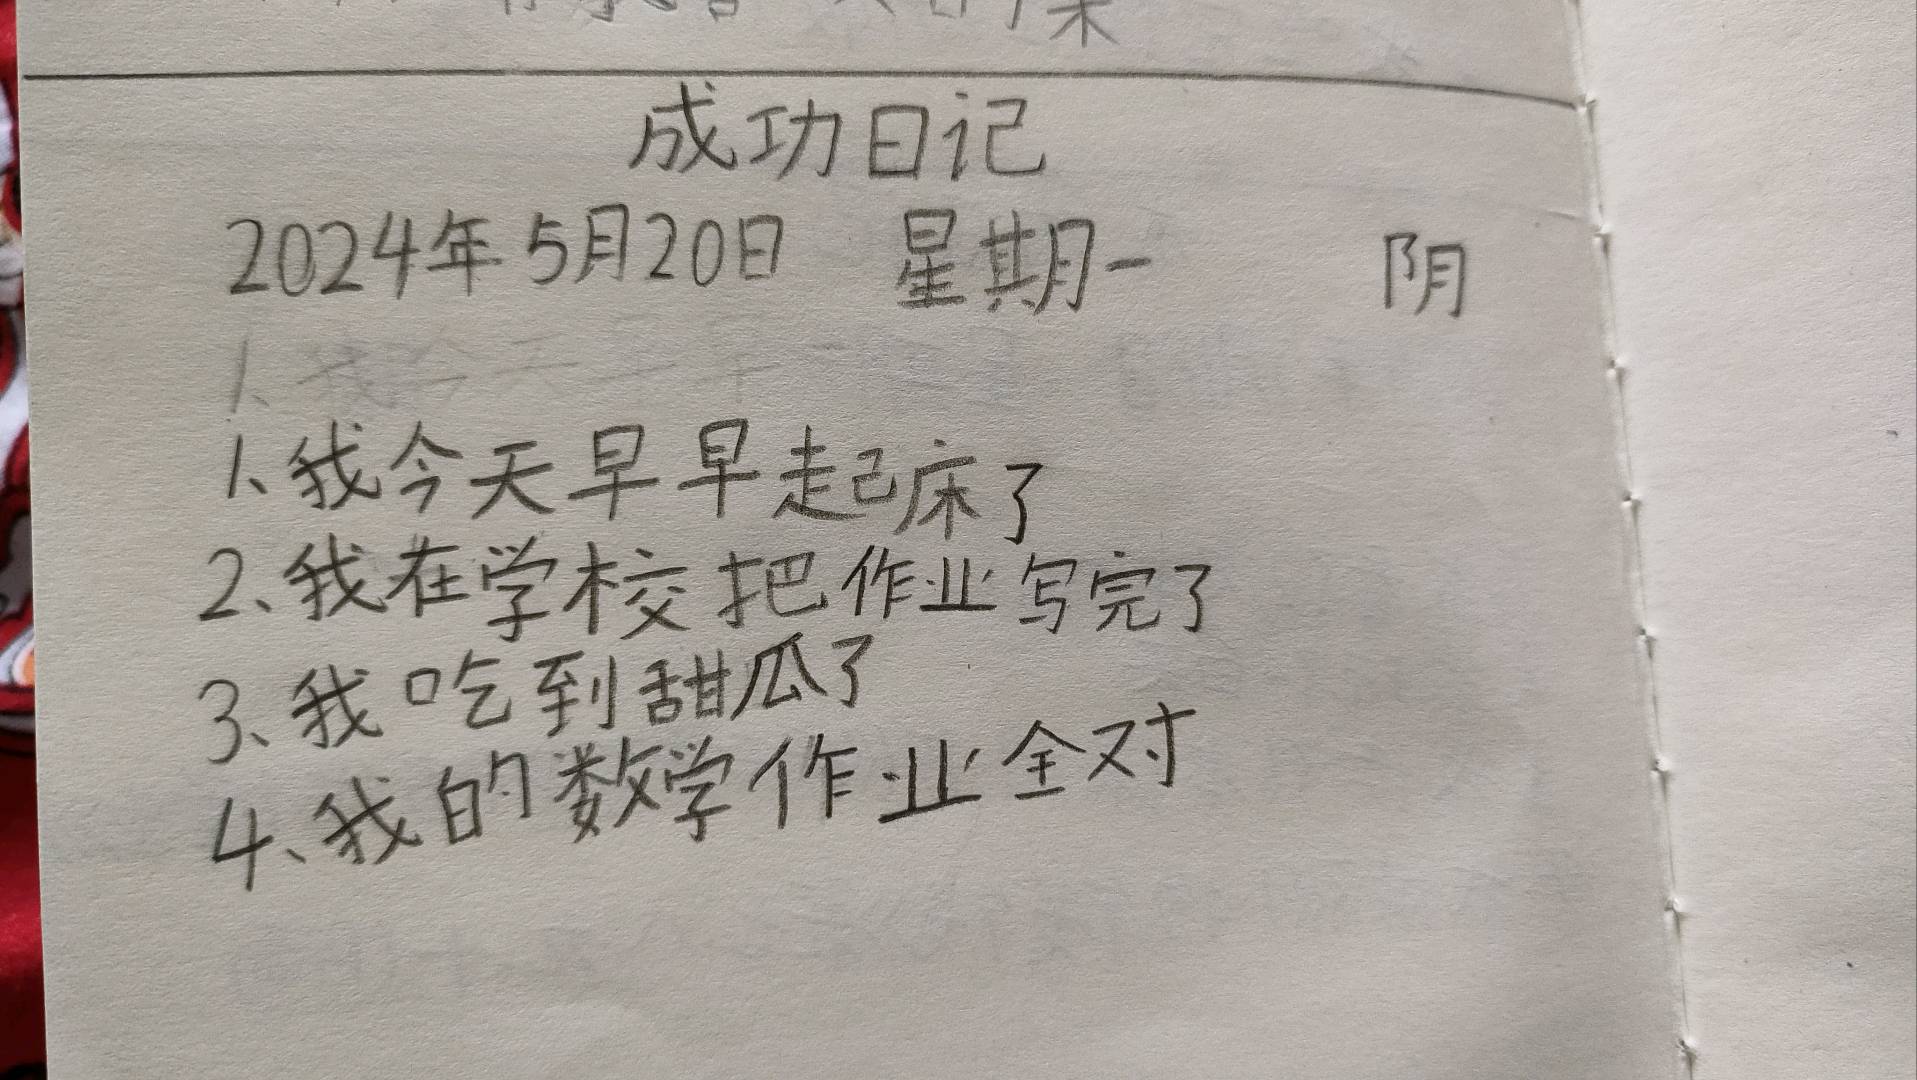 成功日记
2024年5月20日 星期一 阴
1、我今天早早起床了
2、我在学校把作业写完了
3、我吃到甜瓜了
4、我的数学作业全对